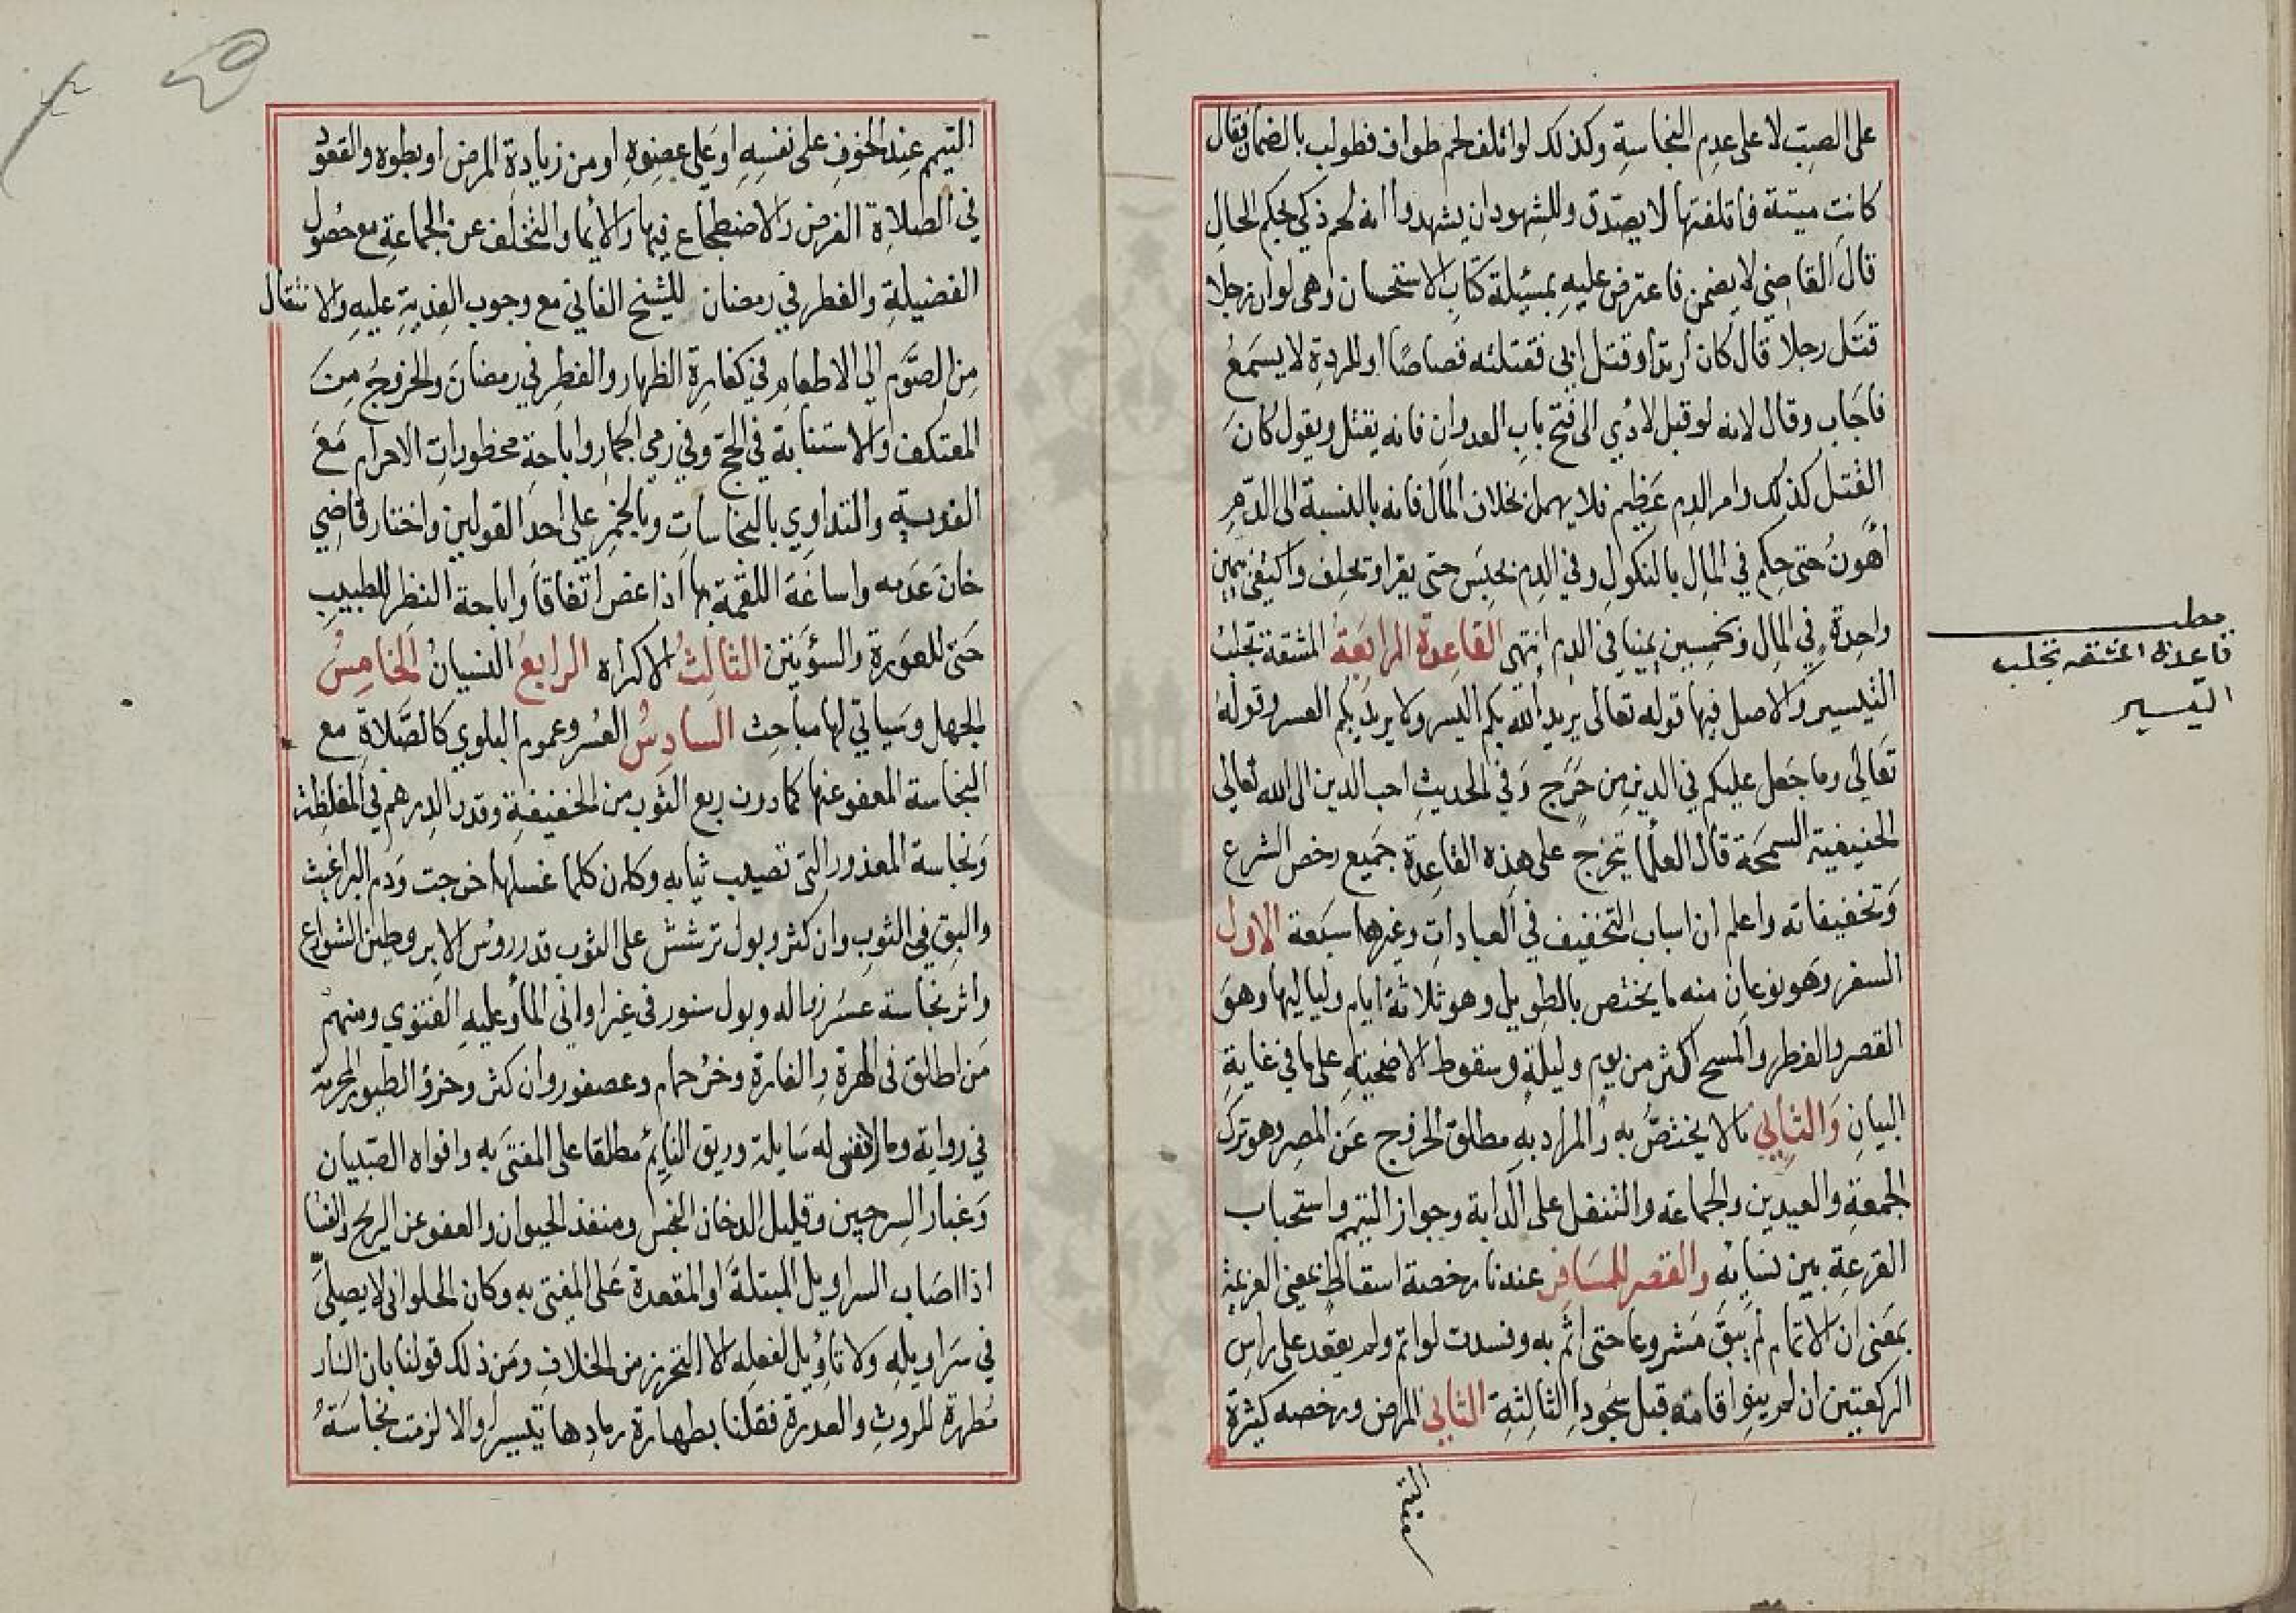 على الصب لا على عدم النجاسة وكذلك لو اتلف لحم طواف فطولب بالضمان فقال
كانت ميتة فأتلفتها لا يصدق وللشهود ان يشهدوا انه لحم ذكي بحكم الحال
قال القاضي لا يضمن فاعترض عليه بمسئلة كتاب الاستحسان وهى لو ان رجلا
قتل رجلا قال كان ارتد او قتل ابي فقتلته قصاصًا او للردة لا يسمع
فاجاب وقال لانه لو قبل لادي الى فتح باب العدوان فانه يقتل ويقول كان
القتل كذلك وامر الدم عظيم فلا يهمل بخلاف المال فانه بالنسبة الى الدم
اهون حتى حكم في المال بالنكول وفي الدم يحبس حتى يقر او يحلف واكتفى بيمين
واحدة في المال وبخمسين يمينا في الدم انتهى القاعدة الرابعة المشقة تجلب
التيسير والاصل فيها قوله تعالى يريد الله بكم اليسر ولا يريد بكم العسر وقوله
تعالى وما جعل عليكم في الدين من حرج وفي الحديث احب الدين الى الله تعالى
الحنيفية السمحة قال العلما يتخرج على هذه القاعدة جميع رخص الشرع
وتخفيفاته واعلم ان اسباب التخفيف في العبادات وغيرها سبعة الاول
السفر وهو نوعان منه ما يختص بالطويل وهو ثلاثة ايام ولياليها وهو
القصر والفطر والمسح اكثر من يوم وليلة وسقوط الاضحية على ما في غاية
البيان والثاني ما لا يختص به والمراد به مطلق الخروج عن المصر وهو ترك
الجمعة والعيدين والجماعة والتنفل على الدابة وجواز التيمم واستحباب
القرعة بين نسائه والقصر للمسافر عندنا رخصة اسقاط بمعنى العزيمة
بمعنى ان الاتمام لم يبق مشروعا حتى اثم به وفسدت لو اتم ولم يقعد على راس
الركعتين ان لم ينو اقامة قبل سجود الثالثة الثاني المرض ورخصه كثيرة
مطلب
قاعدة المشقة تجلب
التيسير
التيمم عند الخوف على نفسه او على عضوه او من زيادة المرض او بطوه والقعود
في الصلاة الفرض والاضطجاع فيها والايما والتخلف عن الجماعة مع حصول
الفضيلة والفطر في رمضان للشيخ الفاني مع وجوب الفدية عليه والانتقال
من الصوم الى الاطعام في كفارة الظهار والفطر في رمضان والخروج من
المعتكف والاستنابة في الحج وفي رمي الجمار واباحة محظورات الاحرام مع
الفدية والتداوي بالنجاسات وبالخمر على احد القولين واختار قاضي
خان عدمه واساغة اللقمة بها اذا غص اتفاقا واباحة النظر للطبيب
حتى للعورة والسؤتين الثالث الاكراه الرابع النسيان الخامس
الجهل وسياتي لها مباحث السادس العسر وعموم البلوي كالصلاة مع
النجاسة المعفو عنها كما دون ربع الثوب من الخفيفة وقدر الدرهم في المغلظة
ونجاسة المعذور التى تصيب ثيابه وكان كلما غسلها خرجت ودم البراغيث
والبق في الثوب وان كثر وبول ترشش على الثوب قدر رؤس الابر وطين الشوارع
واثر نجاسة عسر زواله وبول سنور في غير اواني الما وعليه الفتوي ومنهم
من اطلق في الهرة والفارة وخر حمام وعصفور وان كثر وخرؤ الطيور المحرمة
في رواية وما لا نفس له سايلة وريق النايم مطلقا على المفتى به وافواه الصبيان
وغبار السرجين وقليل الدخان النجس ومنفذ الحيوان والعفو عن الريح والفسا
اذا اصاب السراويل المبتلة او المقعدة على المفتى به وكان الحلواني لا يصلي
في سراويله ولا تاويل لفعله الا التحرز من الخلاف ومن ذلك قولنا بان النار
مطهرة للروث والعذرة فقلنا بطهارة رمادها تيسيرا والا لزمت نجاسة